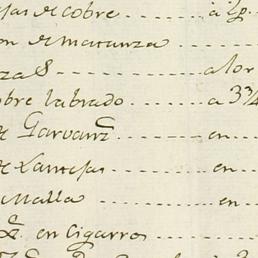 jas de cobre ........ a lp.
on de matanza ........
za S ........ a lor
obre labrado ........ a 3¾
de Garvanz ........ en
de Lantejas ........ en
Malla ........ en
en cigarros ........